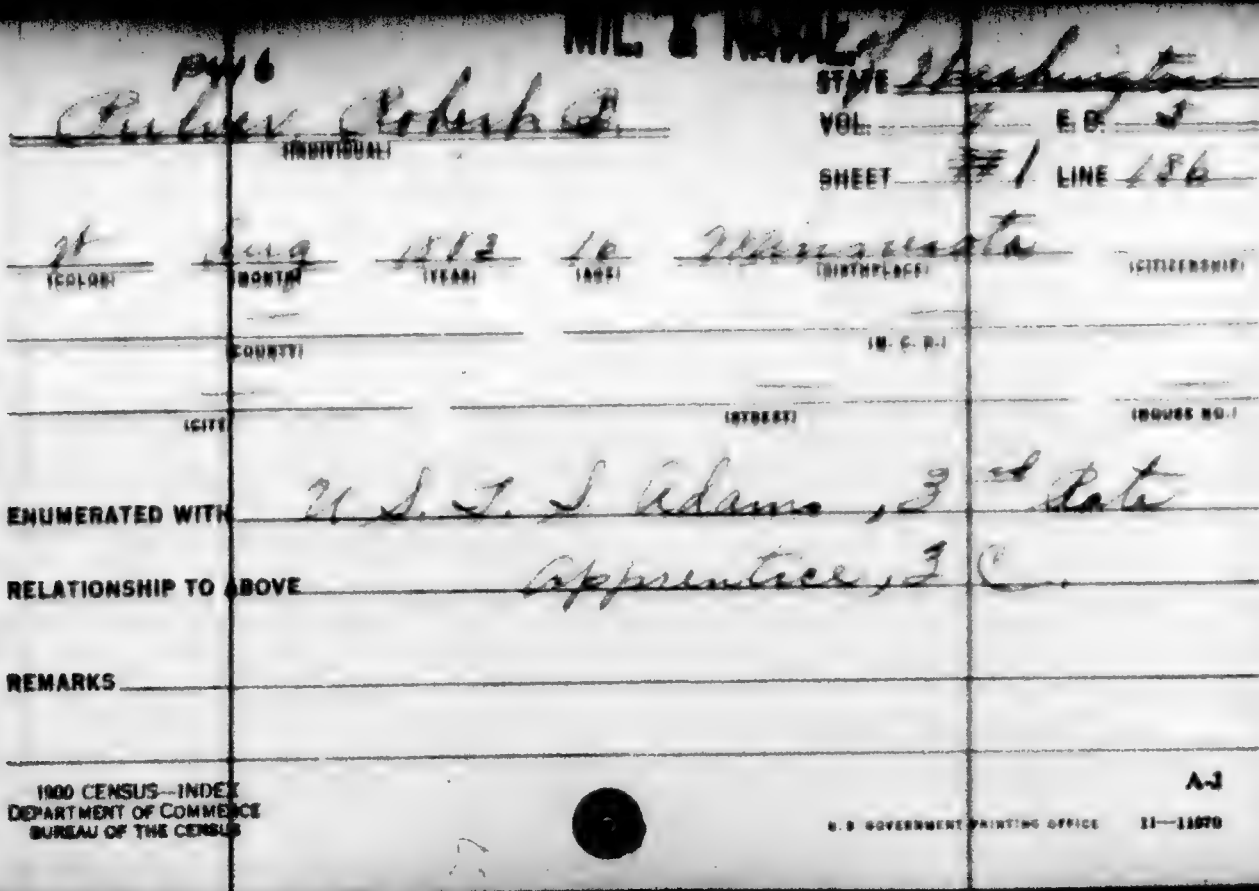 MIL. & NAVAL
P416
STATE Washington
Robert
(INDIVIDUAL)
VOL. E. D.
SHEET #1 LINE
W Aug 1883 16 Minnesota
(COLOR) (MONTH) (YEAR) (AGE) (BIRTHPLACE) (CITIZENSHIP)
(COUNTY) (M. C. D.)
(CITY) (STREET) (HOUSE NO.)
ENUMERATED WITH U. S. T. S Adams, 3rd Rate
RELATIONSHIP TO ABOVE apprentice, 3 C.
REMARKS
1900 CENSUS—INDEX
DEPARTMENT OF COMMERCE
BUREAU OF THE CENSUS
A-1
U.S GOVERNMENT PRINTING OFFICE 11—11070